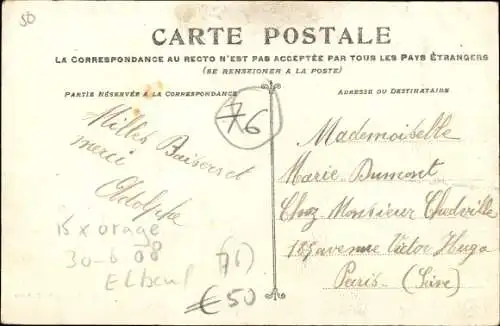 50
CARTE POSTALE
LA CORRESPONDANCE AU RECTO N'EST PAS ACCEPTÉE PAR TOUS LES PAYS ÉTRANGERS
(SE RENSEIGNER A LA POSTE)
PARTIE RÉSERVÉE A LA CORRESPONDANCE
ADRESSE DU DESTINATAIRE
76
Milles Baisers et
merci
Adolphe
Mademoiselle
Marie Dumont
Chez Monsieur
185 avenue Victor Hugo
Paris. (Seine)
orage
30-6 08 (76)
Elbeuf
€50